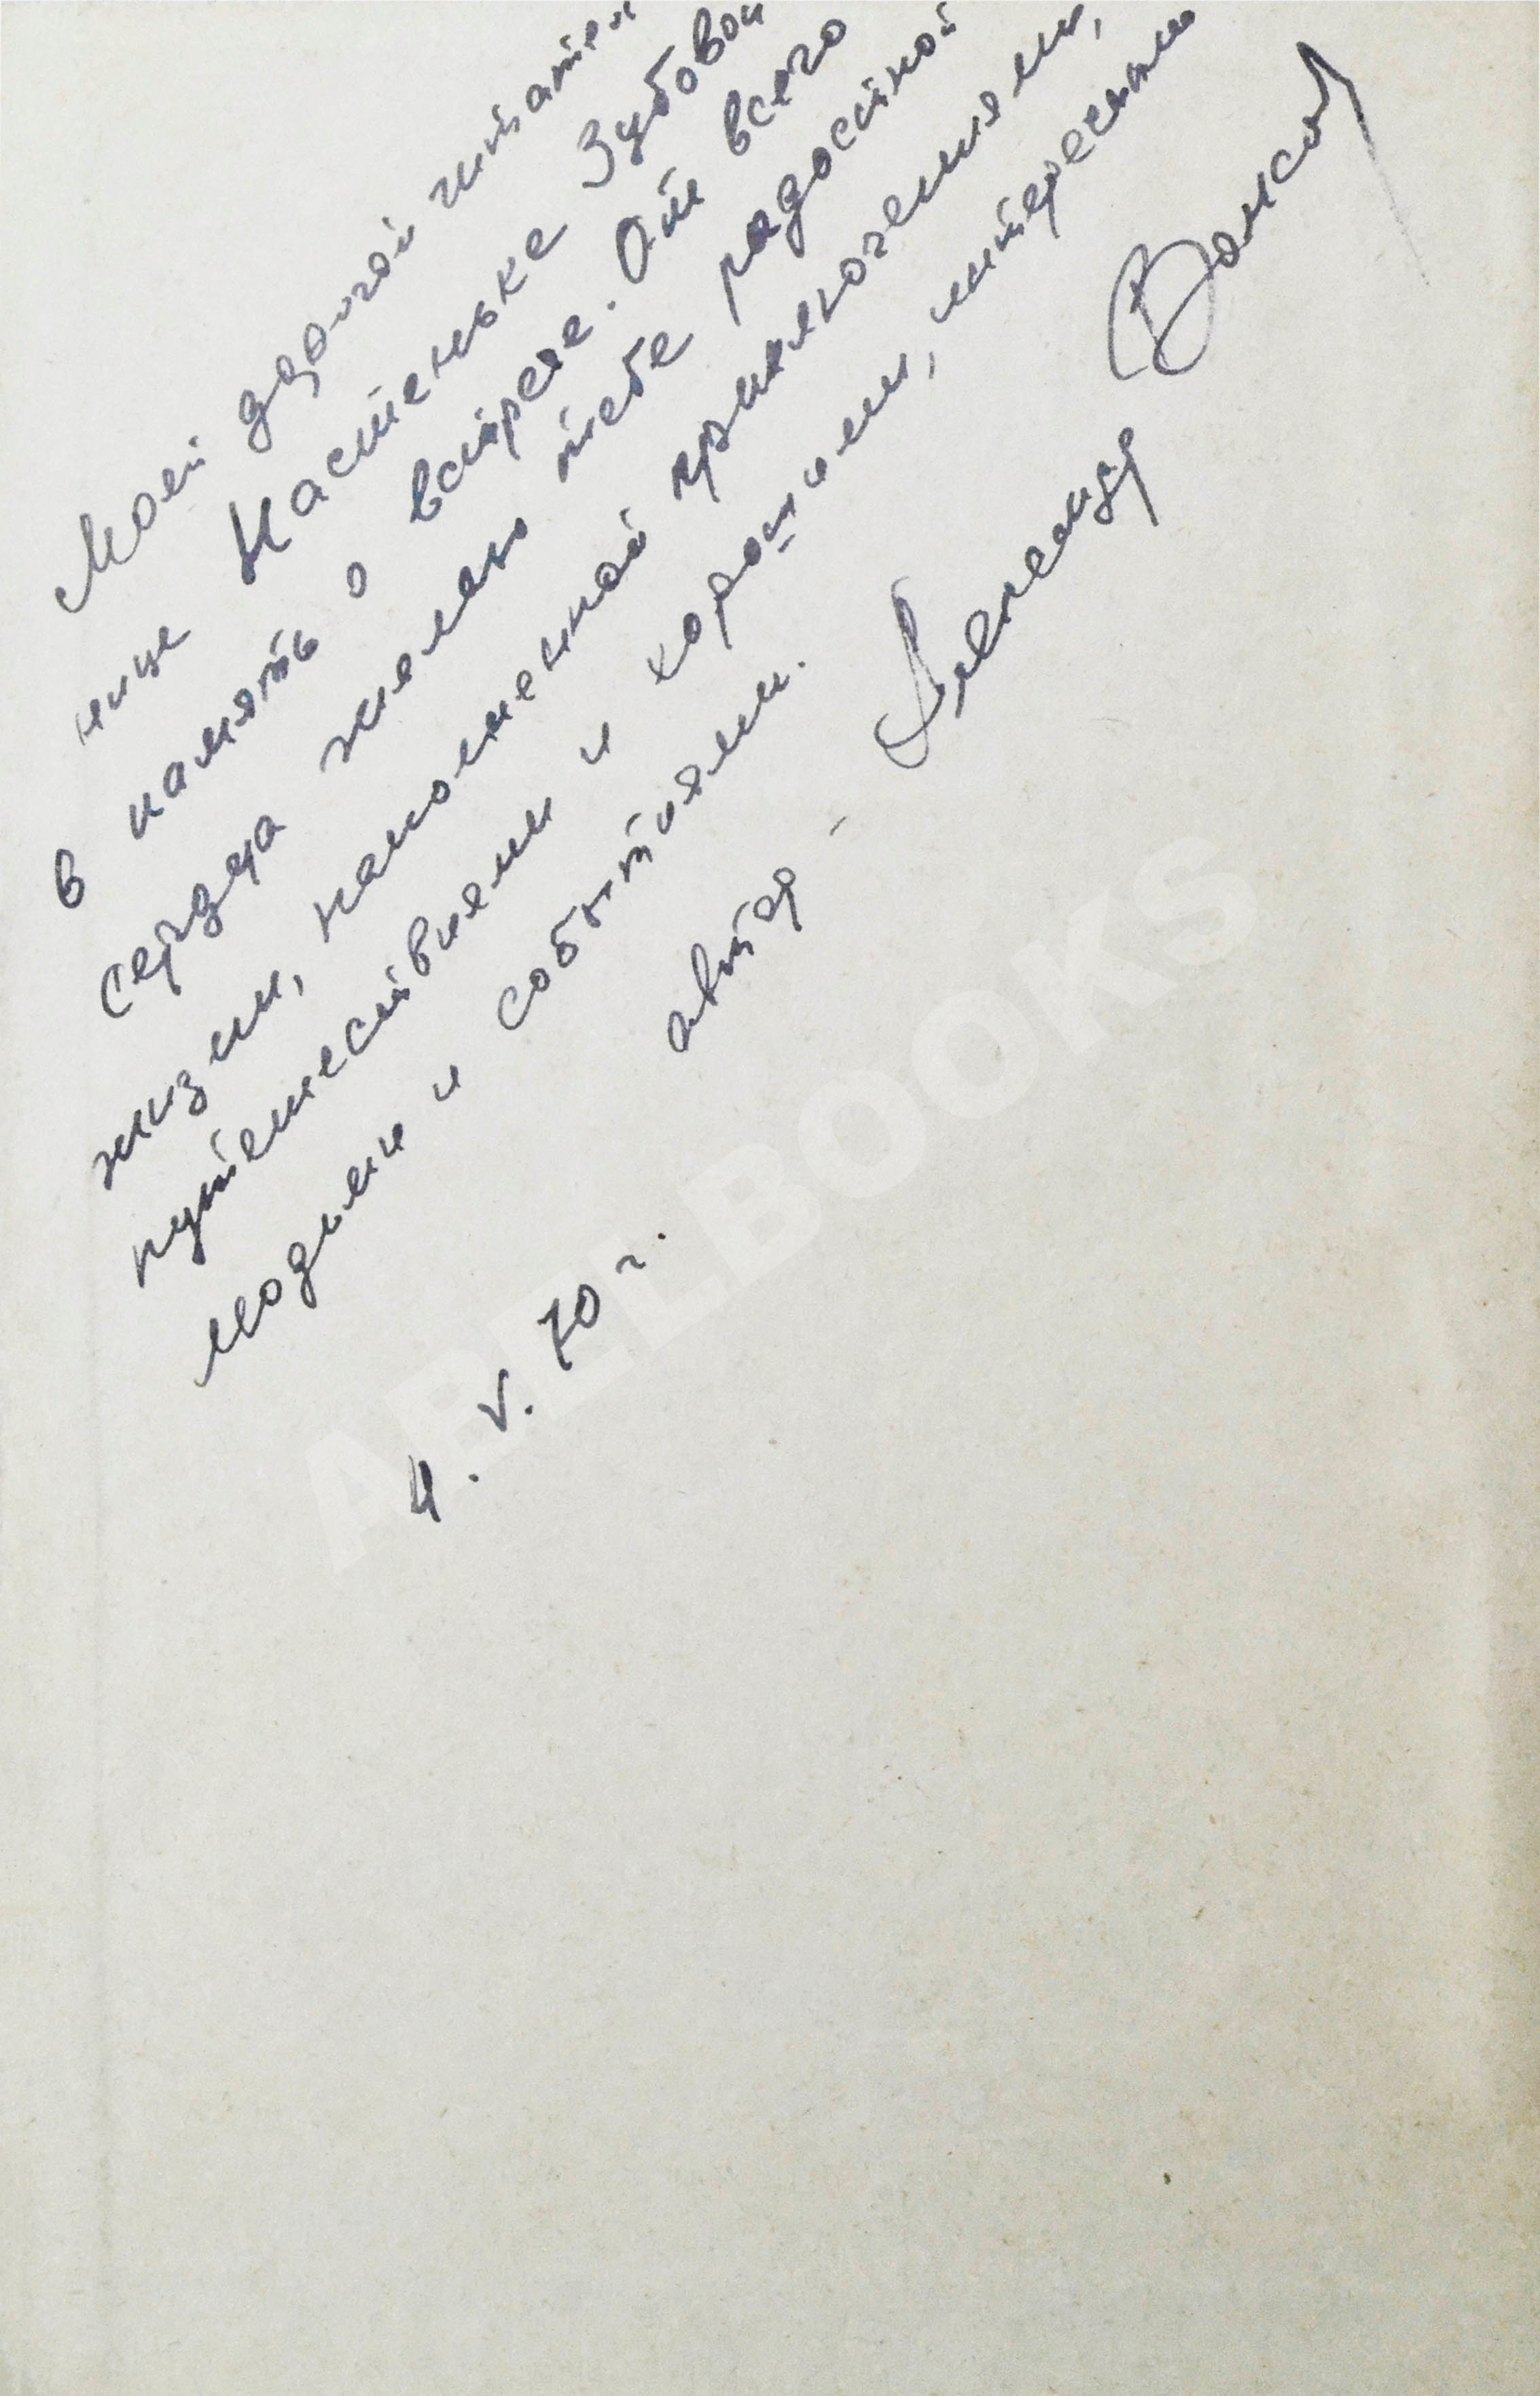 Моей дорогой читатель
нице Настеньке Зубовой
в память о встрече. От всего
сердца желаю тебе радостной
жизни, наполненной приключениями,
путешествиями и хорошими, интересными
людьми и событиями.
автор - Александр Волков
4. V. 70 г.
ABELBOOKS